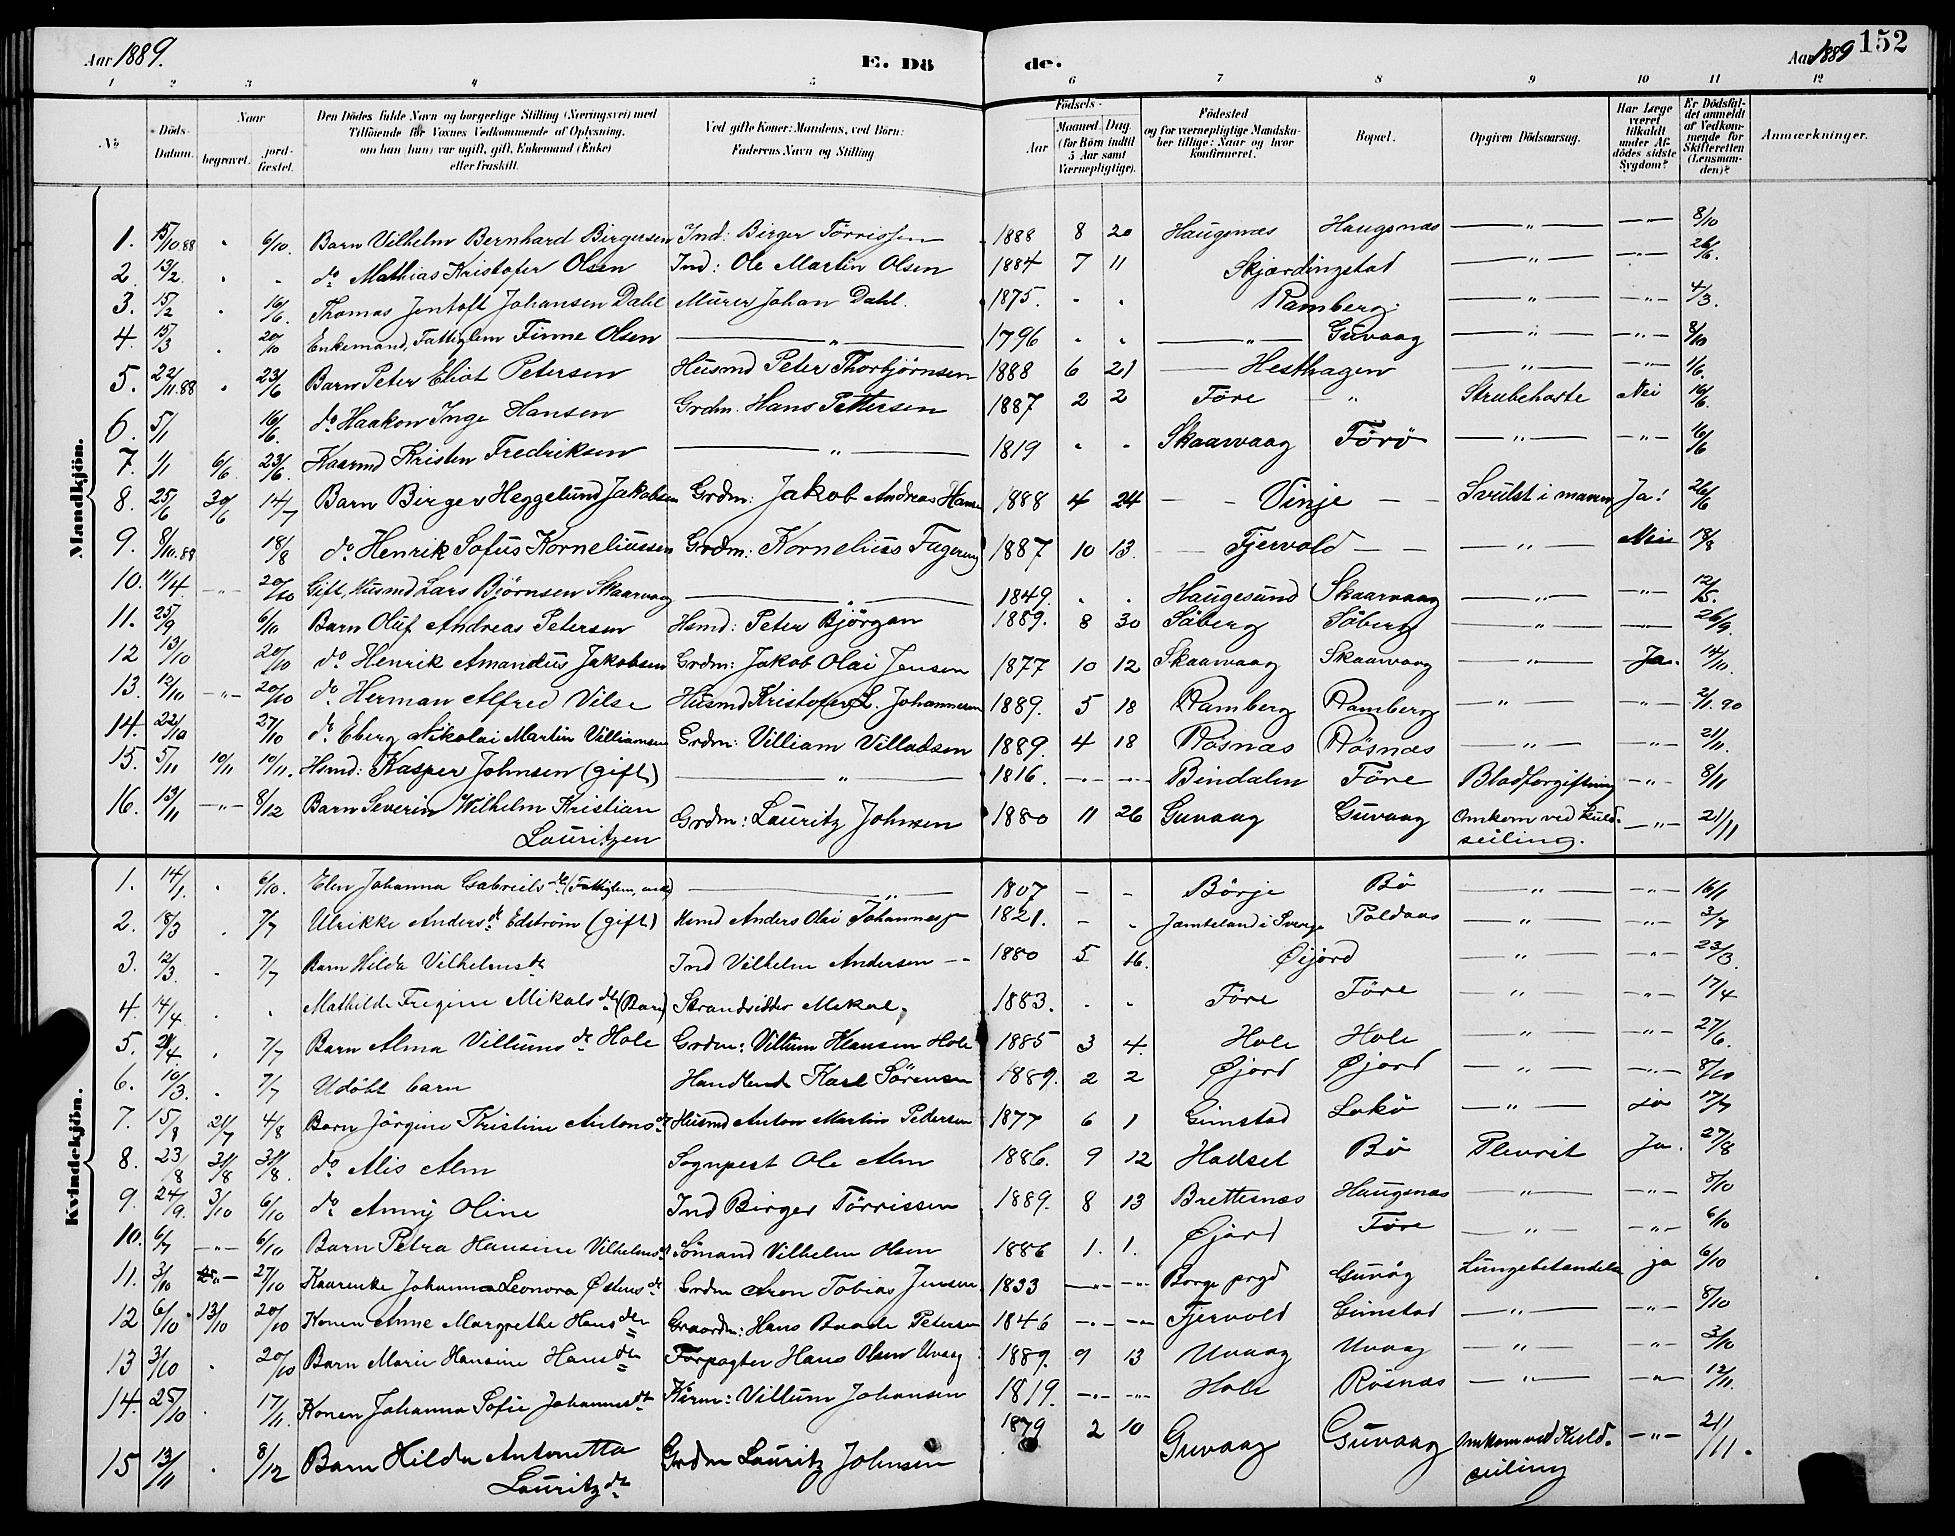 Aar 1889. E. Dö de. Aar 1889 152
1 2 3 4 5 6 7 8 9 10 11 12
No Döds-Datum. Naar begravet. jord-fæstet. Den Dödes fulde Navn og borgerlige Stilling (Næringsvei) med Tilföiende för Voxnes Vedkommende af Oplysning, om han (hun) var ugift, gift, Enkemand (Enke) eller fraskilt. Ved gifte Koner: Mandens, ved Börn: Faderens Navn og Stilling Födsels- Aar Maaned Dag (for Börn indtil 5 Aar samt Værnepligtige). Födested og for værnepligtige Mandskaber tillige: Naar og hvor konfirmeret. Bopæl. Opgiven Dödsaarsag. Har Læge været tilkaldt under Afdödes sidste Sygdom? Er Dödsfaldet anmeldt af Vedkommende for Skifteretten (Lensmanden)? Anmærkninger.
Mandkjön.
1. 15/10.88 " 6/10. Barn Vilhelm Bernhard Birgersen Ind: Birger Törrissen 1888 8 20 Haugsnæs Haugsnæs — " — — " — 8/10
2. 13/2. " " do Mathias Kristofer Olsen Ind: Ole Martin Olsen 1884 7 11 Skjærdingstad — " — — " — 26/6.
3. 15/2 " 16/6. Thomas Jentoft Johansen Dahl Murer Johan Dahl. 1875. " " Ramberg. — " — — " — 4/3.
4. 15/3 " 20/10 Enkemand, Fattiglem Finne Olsen — " — 1796 " " — " — Guvaag — " — — " — 8/10
5. 22/11.88 " 23/6 Barn Peter Eliot Petersen Husmd Peter Thorbjörnsen 1888 6 21 — Hesthagen — " — — " — 1/6.
6. 5/1 16/6. do Haakon Inge Hansen Grdm. Hans Pettersen 1887 2 2 Före — " Strubehoste Nei 16/6.
7. 1/1 6/6 23/6. Kaarmd Kristen Fredriksen — " — 1819 " " Skaarvaag Förö — " — — " — 16/6
8. 25/6 30/6 14/7 Barn Birger Heggelund Jakobsen Grdm: Jakob Andreas Hans 1888 4 24 — — Vinje — — Svulst i maven Ja! 26/6
9. 8/10.88 18/8 do Henrik Sofus Korneliussen Grdm: Kornelius Fagereng 1887 10 13. — Fjervold — — — " — Nei 18/8
10. 11/4. — " — 20/10 Gift, Husmd Lars Björnsen Skaarvaag — " — 1849. " " Haugesund Skaarvaag — " — — " — 12/5.
11. 25/9 6/10 Barn Oluf Andreas Petersen Hsmd: Peter Björgan 1889. 8 30 Söberg Söberg — " — — 26/9.
12 13/10 20/10 do Henrik Amandus Jakobsen Grdm: Jakob Olai Jensen 1877 10 12 Skaarvaag Skaarvaag — " — Ja. 14/10.
13. 12/10 — " — 20/10 do Herman Alfred Vilse Husmd Kristofer L. Johannesen 1889. 5 18 Ramberg Ramberg — " — — " — 2/1.90
14. 22/10 27/10 do Eberg Nikolai Martin Villiamsen Grdm: Villiam Villadsen 1889. 4 18 Rösnæs Rösnæs — " — — " — 21/11.
15. 5/11 10/11 10/11. Hsmd: Kasper Johnsen (gift) — " — 1816. — " — — " — Bindalen Före Blodforgiftning — " — 8/11
16. 13/11 — " — 8/12 Barn Severin Wilhelm Kristian Grdm: Lauritz Johnsen 1880 11 26 Guvaag Guvaag Omkom ved Kuld- — " — 21/11
Lauritzen seiling.
Kvindekjön.
1. 14/1. " 6/10. Elen Johanna Gabrielsdtr (Fattiglem, enke) — " — 1807 — — Börje Bö — " — — " — 16/1
2. 18/3 . 7/7 Ulrikke Andersdr Edström (gift) Hsmd Anders Olai Johanness 1821. — " Jæmteland i Sverge Poldaas — " — — " — 3/7
3. 12/3. " 7/7 Barn Hilda Vilhelmsdr Ind Vilhelm Andersen — 1880 5 16. Öjord — " — — " — 23/3.
4. 14/4. . " Mathilde Fregine Mikalsdtr (Barn) Strandsidder Mekal, 1883. " " Före Före — " — — " — 17/4
5. 21/4 . 7/7 Barn Alma Villumsdr Hole Grdm: Villum Hansen Hole 1885 3 4. Hole Hole — " — — " — 27/6.
6. 10/3. . 7/7 Udöbt barn Handlend Karl Sörensen 1889. 2 2 Øjord Øjord — " — — " — 8/10
7. 15/8 21/7 4/8 Barn Jörgine Kristine Antonsdr Husmd Anton Martin Pedersen 1877 6 1 Gimstad Lokö — " — Ja 17/7
8. 23/8 31/8 31/8. do Alis Alm Sognpest Ole Alm 1886. 9 12 Hadsel Bö Plevrit Ja. 27/8
9. 24/9. 3/10 6/10 do Anny Oline Ind Birger Törrissen 1889. 8 13 Brettesnæs Haugsnæs — " — — " — 8/10
10. 6/7 — " — 6/10 Barn Petra Hansine Vilhelmsdt Sömand Vilhelm Olsen 1886 1. 1. Øjord Före — " — — " — 6/10
11. 3/10 — " — 27/10 Kaarenke Johanna Leonora Østensdr Grdm Aron Tobias Jensen 1833 — " — — " — Borge prgd Guvåg Lungebetændelse ja 6/10
12 6/10 13/10 20/10 Konen Anne Margrethe Hansdtr Graardm: Hans Baade Petersen 1846 — " — — " — Fjervold Gimstad — " — — " — 8/10
13 3/10 . 20/10 Barn Marie Hansine Hansdtr Forpagter Hans Olsen Uvaag 1889. 9 13 Uvaag Uvaag — " — — " — 3/10
14. 25/10 . 17/11. Konen Johanna Sofie Johannesdt Kårm: Villum Johansen 1819. — " — — " — Hole Rösnæs — " — — " — 12/11.
15 13/11 . 8/12 Barn Hilda Antonetta Grdm Lauritz Johnsen 1879 2 10 Guvaag Guvaag Omkom ved Kuld- — " — 21/11.
Lauritzdtr seiling